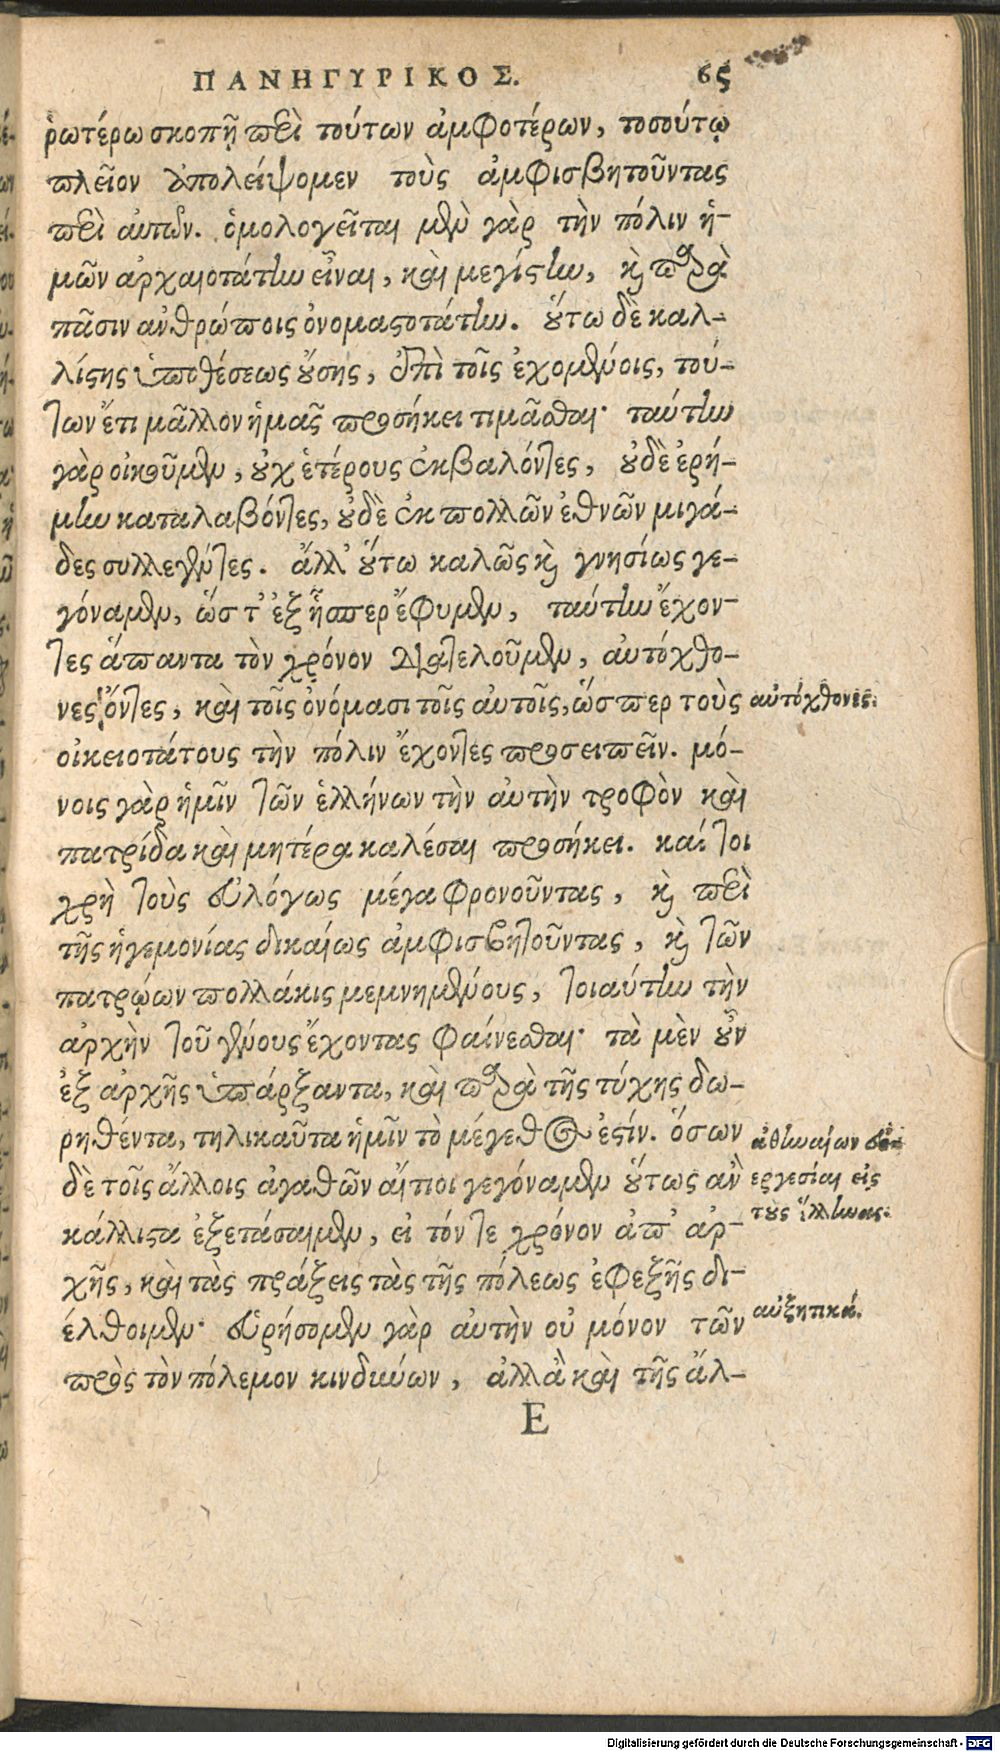 ΠΑΝΗΓΥΡΙΚΟΣ. 65
ῤωτέρω σκοπῇ περὶ τούτων ἀμφοτέρων, τοσούτῳ
πλεῖον ἀπολείψομεν τοὺς ἀμφισβητοῦντας
περὶ αὐτῶν. ὁμολογεῖται μὲν γὰρ τὴν πόλιν ἡ-
μῶν ἀρχαιοτάτην εἶναι, καὶ μεγίστην, καὶ παρὰ
πᾶσιν ἀνθρώποις ὀνομαστοτάτην. οὕτω δὲ καλ-
λίστης ὑποθέσεως οὔσης, ἐπὶ τοῖς ἐχομένοις, τού-
των ἔτι μᾶλλον ἡμᾶς προσήκει τιμᾶσθαι· ταύτην
γὰρ οἰκοῦμεν, οὐχ ἑτέρους ἐκβαλόντες, οὐδὲ ἐρή-
μην καταλαβόντες, οὐδὲ ἐκ πολλῶν ἐθνῶν μιγά-
δες συλλεγέντες. ἀλλ' οὕτω καλῶς καὶ γνησίως γε-
γόναμεν, ὥστ' ἐξ ἧσπερ ἔφυμεν, ταύτην ἔχον-
τες ἅπαντα τὸν χρόνον διατελοῦμεν, αὐτόχθο-
νες ὄντες, καὶ τοῖς ὀνόμασι τοῖς αὐτοῖς, ὥσπερ τοὺς
αὐτόχθονες.
οἰκειοτάτους τὴν πόλιν ἔχοντες προσειπεῖν. μό-
νοις γὰρ ἡμῖν τῶν ἑλλήνων τὴν αὐτὴν τροφὸν καὶ
πατρίδα καὶ μητέρα καλέσαι προσήκει. καί τοι
χρὴ τοὺς εὐλόγως μέγα φρονοῦντας, καὶ περὶ
τῆς ἡγεμονίας δικαίως ἀμφισβητοῦντας, καὶ τῶν
πατρῴων πολλάκις μεμνημένους, τοιαύτην τὴν
ἀρχὴν τοῦ γένους ἔχοντας φαίνεσθαι· τὰ μὲν οὖν
ἐξ ἀρχῆς ὑπάρξαντα, καὶ παρὰ τῆς τύχης δω-
ρηθέντα, τηλικαῦτα ἡμῖν τὸ μέγεθος ἐστίν. ὅσων
ἀθηναίων εὐ-
δὲ τοῖς ἄλλοις ἀγαθῶν αἴτιοι γεγόναμεν οὕτως ἂν
εργεσίαι εἰς
τοὺς ἕλληνας.
κάλλιστα ἐξετάσαιμεν, εἰ τόν τε χρόνον ἀπ' ἀρ-
χῆς, καὶ τὰς πράξεις τὰς τῆς πόλεως ἐφεξῆς δι-
έλθοιμεν· εὑρήσομεν γὰρ αὐτὴν οὐ μόνον τῶν
αὐξητικά.
πρὸς τὸν πόλεμον κινδύνων, ἀλλὰ καὶ τῆς ἄλ-
E
Digitalisierung gefördert durch die Deutsche Forschungsgemeinschaft - DFG